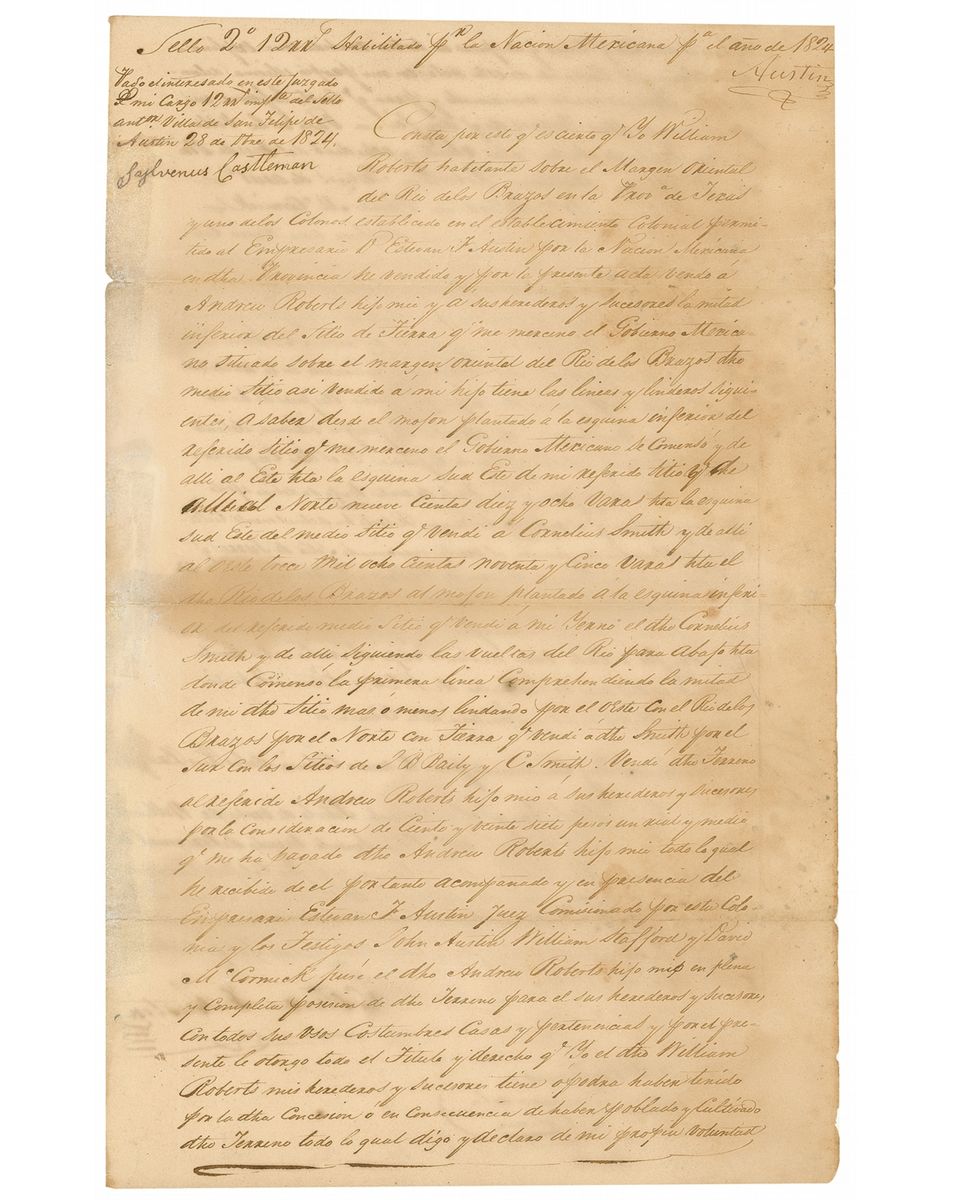 Sello 2º 12rrs Habilitado pr la Nacion Mexicana pª el año de 1824
Austin
Pagó el interesado en este Juzgado
de mi Cargo 12rrs impte del Sello
antor Villa de San Felipe de
Austin 28 de Obre de 1824.
Sylvenus Castleman
Consta por este qe es cierto qe Yo William
Roberts habitante sobre el Margen Oriental
del Rio delos Brazos en la Provª de Texas
y uno delos Colonos establecido en el establecimiento Colonial permi-
tido al Empresario Dn Estevan F. Austin por la Nacion Mexicana
en dha Provincia he vendido y por la presente acta Vendo á
Andrew Roberts hijo mio y a sus herederos y sucesores la mitad
inferior del Sitio de Tierra qe me merceno el Gobierno Mexica-
no Situado sobre el margen oriental del Rio de los Brazos dho
medio Sitio asi Vendido á mi hijo tiene las lineas y linderos Sigui-
entes, á saber desde el mojon plantado á la esquina inferior del
referido Sitio qe me merceno el Gobierno Mexicano se Comensó y de
alli al Este hta la esquina Sud Este de mi referido Sitio qe de
alli al Norte nueve Cientas diez y ocho Varas hta la esquina
Sud Este del medio Sitio qe Vendi á Cornelius Smith y de alli
al Oeste trece Mil ocho Cientas noventa y Cinco Varas hta el
dho Rio de los Brazos al mojon plantado a la esquina inferi-
or del referido medio Sitio qe Vendi á mi Yerno el dho Cornelius
Smith y de alli Siguiendo las vueltas del Rio para Abajo hta
donde Comensó la primera linea Comprehendiendo la mitad
de mi dho Sitio mas ó menos lindando por el Oeste Con el Rio delos
Brazos por el Norte con Tierra qe Vendi á dho Smith por el
Sur Con los Sitios de J B Baily y C Smith. Vendi dho Terreno
al referido Andrew Roberts hijo mio a sus herederos y sucesores
por la Consideracion de Ciento y veinte siete pesos un rial y medio
qe me ha pagado dho Andrew Roberts hijo mio todo lo qual
he recibido de el por tanto acompañado y en presencia del
Empresari Estevan F Austin Juez Comisionado por esta Colo-
nia y los Testigos John Austin William Stafford y David
McCormick puse el dho Andrew Roberts hijo mio en plena
y Completa posesion de dho Terreno para el sus herederos y sucesores
Con todos sus Usos Costumbres Casas y pertenencias y por el pre-
sente le otorgo todo el Titulo y derecho qe Yo el dho William
Roberts mis herederos y sucesores tiene ó podra haben tenido
por la dha Concesion ó en Consecuencia de haben poblado y Cultivado
dho Terreno todo lo qual digo y declaro de mi propia Voluntad